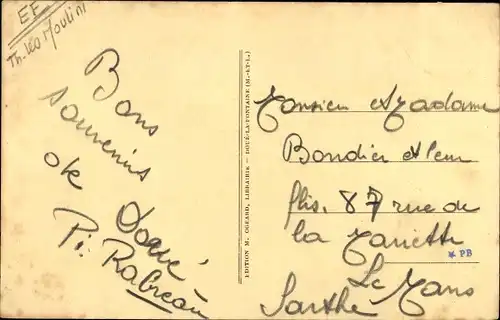 EF
Th. les Moulins
Bons
souvenirs
de Doué,
P. Rabreau
EDITION M. OGEARD, LIBRAIRIE - DOUÉ-LA-FONTAINE (M.-ET-L.)
Monsieur et Madame
Bondier et leur
fils. 87 rue de
la Mariette
* PB
Le Mans
Sarthe